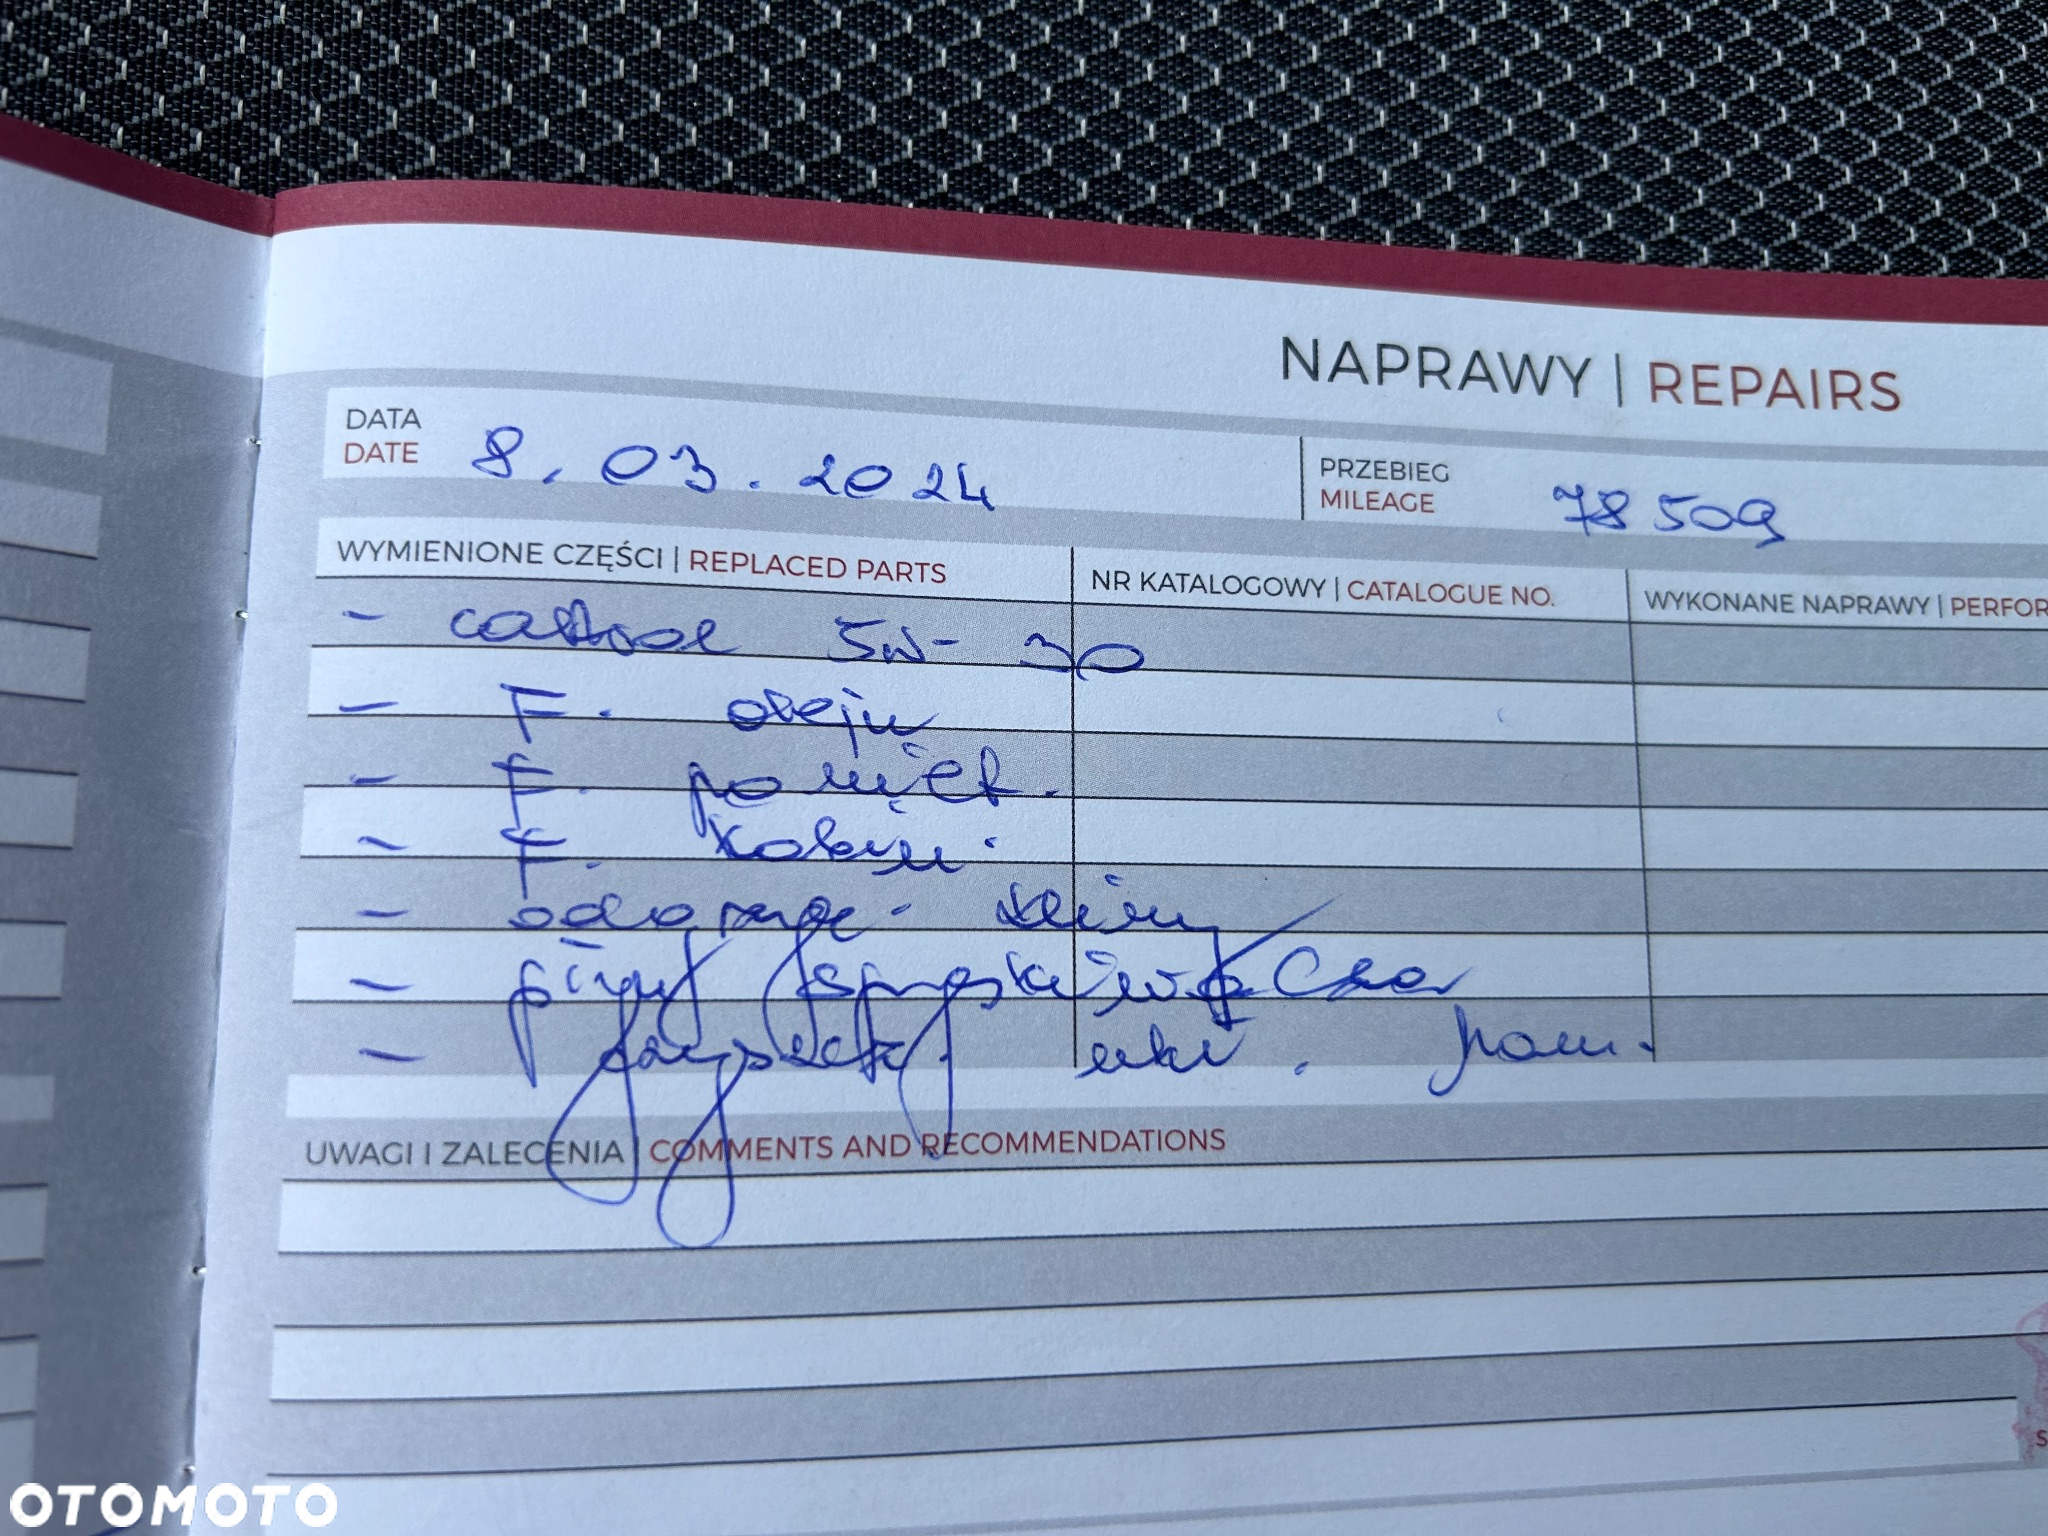 NAPRAWY | REPAIRS
DATA
DATE
8.03.2024
PRZEBIEG
MILEAGE
78 509
WYMIENIONE CZĘŚCI | REPLACED PARTS
NR KATALOGOWY | CATALOGUE NO.
WYKONANE NAPRAWY | PERFOR
- castrol 5W-30
- F. oleju
- F. powiet.
- F. kabin.
- klimy
UWAGI I ZALECENIA | COMMENTS AND RECOMMENDATIONS
OTOMOTO